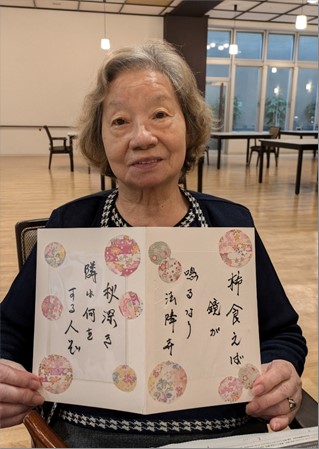 柿食えば
鐘が
鳴るなり
法隆寺
秋深き
隣は何を
する人ぞ